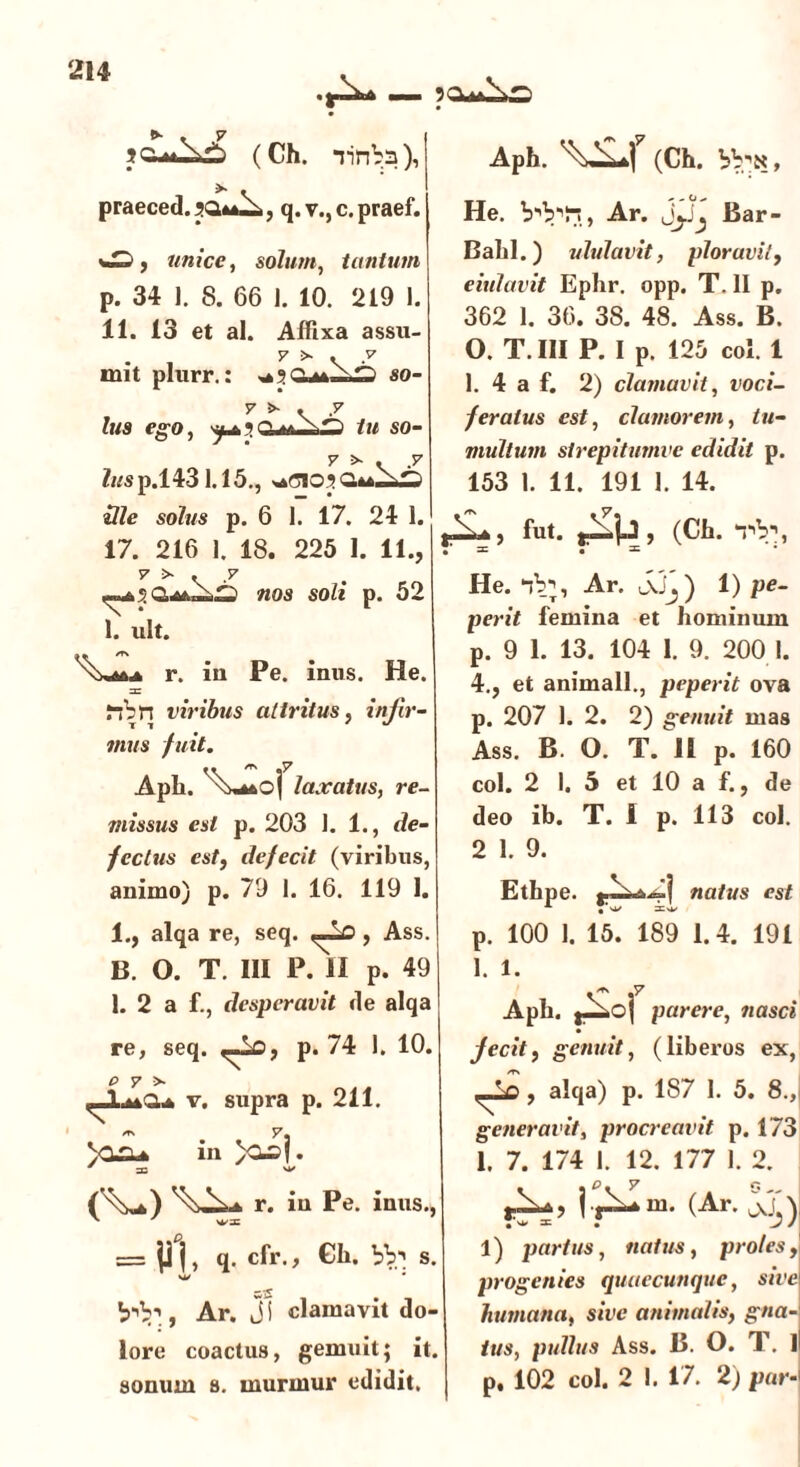 214 ܒܠܚܘܕ — ܝܠܕ.
ܒܠܚܘܕ (Ch. בלחוד),
praeced. ܠܚܘܕ, q. v., c. praef.
ܒ, unice, solum, tantum
p. 34 l. 8. 66 l. 10. 219 l.
11. 13 et al. Affixa assu-
mit plurr.: ܒܠܚܘܕܝ so-
lus ego, ܒܠܚܘܕܝܟ tu so-
lus p. 143 l. 15., ܒܠܚܘܕܘܗܝ
ille solus p. 6 l. 17. 24 l.
17. 216 l. 18. 225 l. 11.,
ܒܠܚܘܕܝܢ nos soli p. 52
l. ult.
ܝܚܠ r. in Pe. inus. He.
חָלָה viribus attritus, infir-
mus fuit.
Aph. ܐܘܚܠ laxatus, re-
missus est p. 203 l. 1., de-
fectus est, defecit (viribus,
animo) p. 79 l. 16. 119 l.
1., alqa re, seq. ܡܢ, Ass.
B. O. T. III P. II p. 49
l. 2 a f., desperavit de alqa
re, seq. ܡܢ, p. 74 l. 10.
ܝܘܚܢܢ v. supra p. 211.
ܝܟܡ in ܐܟܡ.
(ܝܠ) ܝܠܠ r. in Pe. inus.,
= ܐܠܐ, q. cfr., Ch. ילל s.
יליל, Ar. أل clamavit do-
lore coactus, gemuit; it.
sonum s. murmur edidit.
Aph. ܐܝܠܠ (Ch. אילל,
He. היליל, Ar. ولول Bar-
Bahl.) ululavit, ploravit,
eiulavit Ephr. opp. T. II p.
362 l. 36. 38. 48. Ass. B.
O. T. III P. I p. 125 col. 1
l. 4 a f. 2) clamavit, voci-
feratus est, clamorem, tu-
multum strepitumve edidit p.
153 l. 11. 191 l. 14.
ܝܠܕ, fut. ܢܐܠܕ, (Ch. יליד,
He. ילד, Ar. ولد) 1) pe-
perit femina et hominum
p. 9 l. 13. 104 l. 9. 200 l.
4., et animall., peperit ova
p. 207 l. 2. 2) genuit mas
Ass. B. O. T. II p. 160
col. 2 l. 5 et 10 a f., de
deo ib. T. I p. 113 col.
2 l. 9.
Ethpe. ܐܬܝܠܕ natus est
p. 100 l. 15. 189 l. 4. 191
l. 1.
Aph. ܐܘܠܕ parere, nasci
fecit, genuit, (liberos ex,
ܡܢ, alqa) p. 187 l. 5. 8.,
generavit, procreavit p. 173
l. 7. 174 l. 12. 177 l. 2.
ܝܠܕ, ܝܠܕܐ m. (Ar. ولد)
1) partus, natus, proles,
progenies quaecunque, sive
humana, sive animalis, gna-
tus, pullus Ass. B. O. T. I
p. 102 col. 2 l. 17. 2) par-